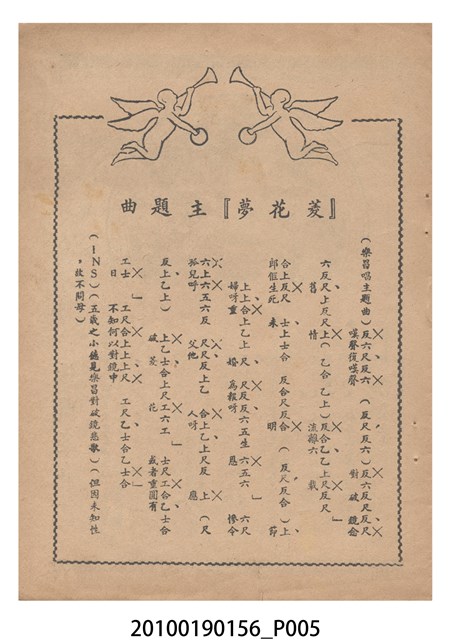 『菱花夢』主題曲
（樂昌唱主題曲）反六尺反六（反尺反六）反六反尺反尺
嘆聲復嘆聲 對破鏡念
六反尺上反尺上（乙合乙上）反合乙乙上尺反尺
舊情 流離六載
合上反尺 士上士合 反合尺反合（反尺反合）上
郎你生死未明 節
上上合上乙上尺 尺反反六五生 六五六 六尺
婦呀重婚為報呀恩 慘令
六上六五六反 尺尺反上乙 合上乙上尺反上（尺
孤兒呼父他人呀應
反上乙上）上乙士合上尺工六工 士尺工合乙士合
破菱花 或者重圓有
工士 工尺合上上上尺 工尺乙士合乙士合
日 不知何以對鏡中
（INS）（五歲之小德見樂昌對破鏡悲嘆）（但因未知性
，故不問母）
20100190156_P005